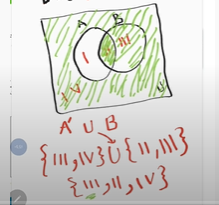 A B
I II III
IV
U
A' U B
{III, IV} U {II, III}
{III, II, IV}